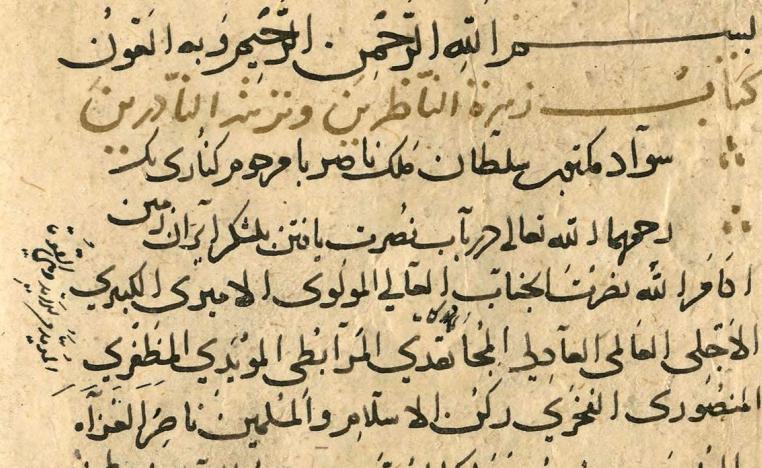 بســـم الله الرَّحْمٰنِ الرَّحِيْمِ وَبه العَوْنُ
كتابُ زهرة النَّاظرين ونزهة النادرين
سوآد مكتوب سلطان مَلك ناصر بامرحوم كنارى بك
رحمهما الله تعالى در بآب نُصرت يافتن بلشكر ايران زمين
ادَامَ اللهُ نصرتَ الجنابْ العَالي المَولَوى الاميرى الكبيري
الاَجَلّى العَالمى العآدِلى المجُاهدي المرَابُطى المويَّدي المظفّري
المنصُورى الفخري ركن الاسلامِ والمسُلمين ناصِرُ الغزآه